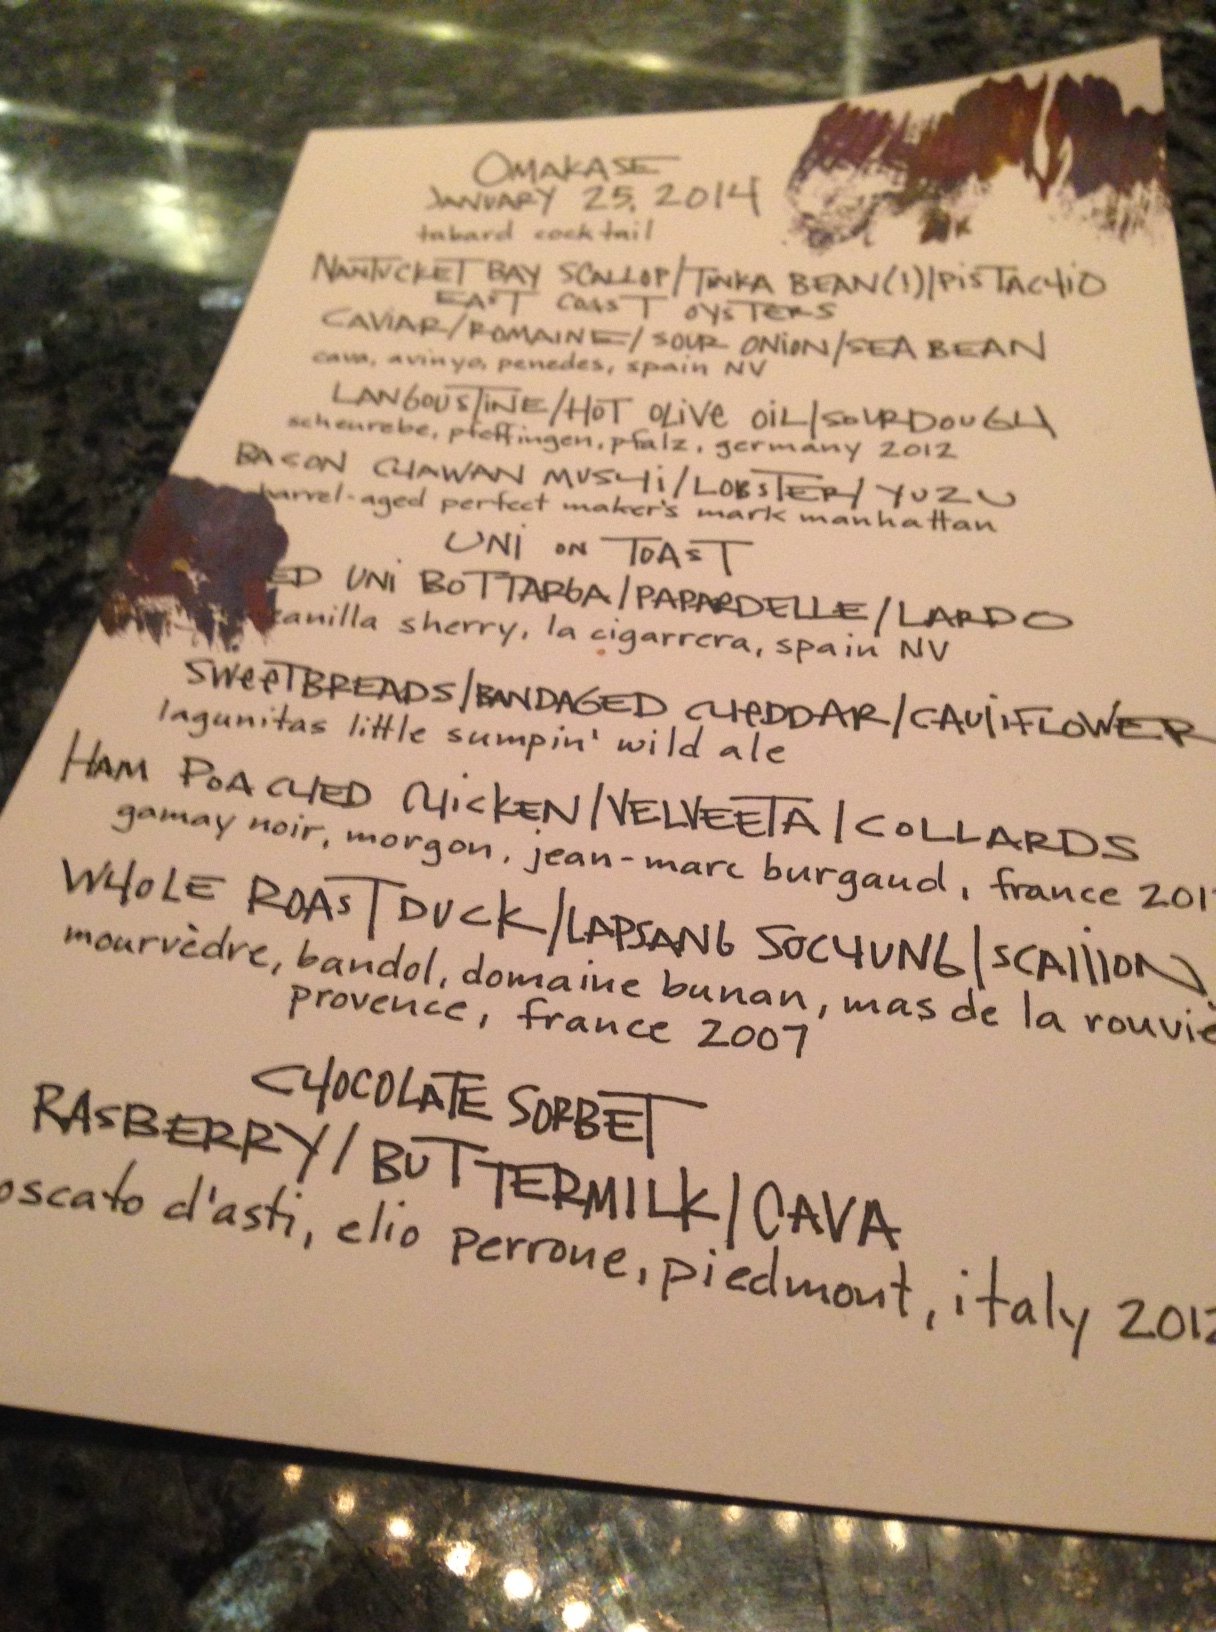 OMAKASE
JANUARY 25, 2014
tabard cocktail
NANTUCKET BAY SCALLOP/TONKA BEAN(!)/PISTACHIO
EAST COAST OYSTERS
CAVIAR/ROMAINE/SOUR ONION/SEA BEAN
cava, avinyo, penedes, spain NV
LANGOUSTINE/HOT OLIVE OIL/SOURDOUGH
scheurebe, pfeffingen, pfalz, germany 2012
BACON CHAWAN MUSHI/LOBSTER/YUZU
barrel-aged perfect maker's mark manhattan
UNI ON TOAST
ED UNI BOTTARGA/PAPARDELLE/LARDO
zanilla sherry, la cigarrera, spain NV
SWEETBREADS/BANDAGED CHEDDAR/CAULIFLOWER
lagunitas little sumpin' wild ale
HAM POACHED CHICKEN/VELVEETA/COLLARDS
gamay noir, morgon, jean-marc burgaud, france 201
WHOLE ROAST DUCK/LAPSANG SOCHUNG/SCALLION
mourvèdre, bandol, domaine bunan, mas de la rouviè
provence, france 2007
CHOCOLATE SORBET
RASBERRY/BUTTERMILK/CAVA
oscato d'asti, elio perrone, piedmont, italy 2012